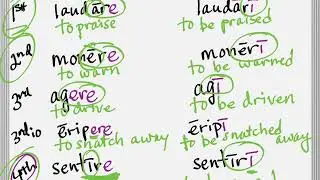 1st laudāre laudārī
to praise to be praised
2nd monēre monērī
to warn to be warned
3rd agere agī
to drive to be driven
3rd io ēripere ēripī
to snatch away to be snatched away
4th sentīre sentīrī